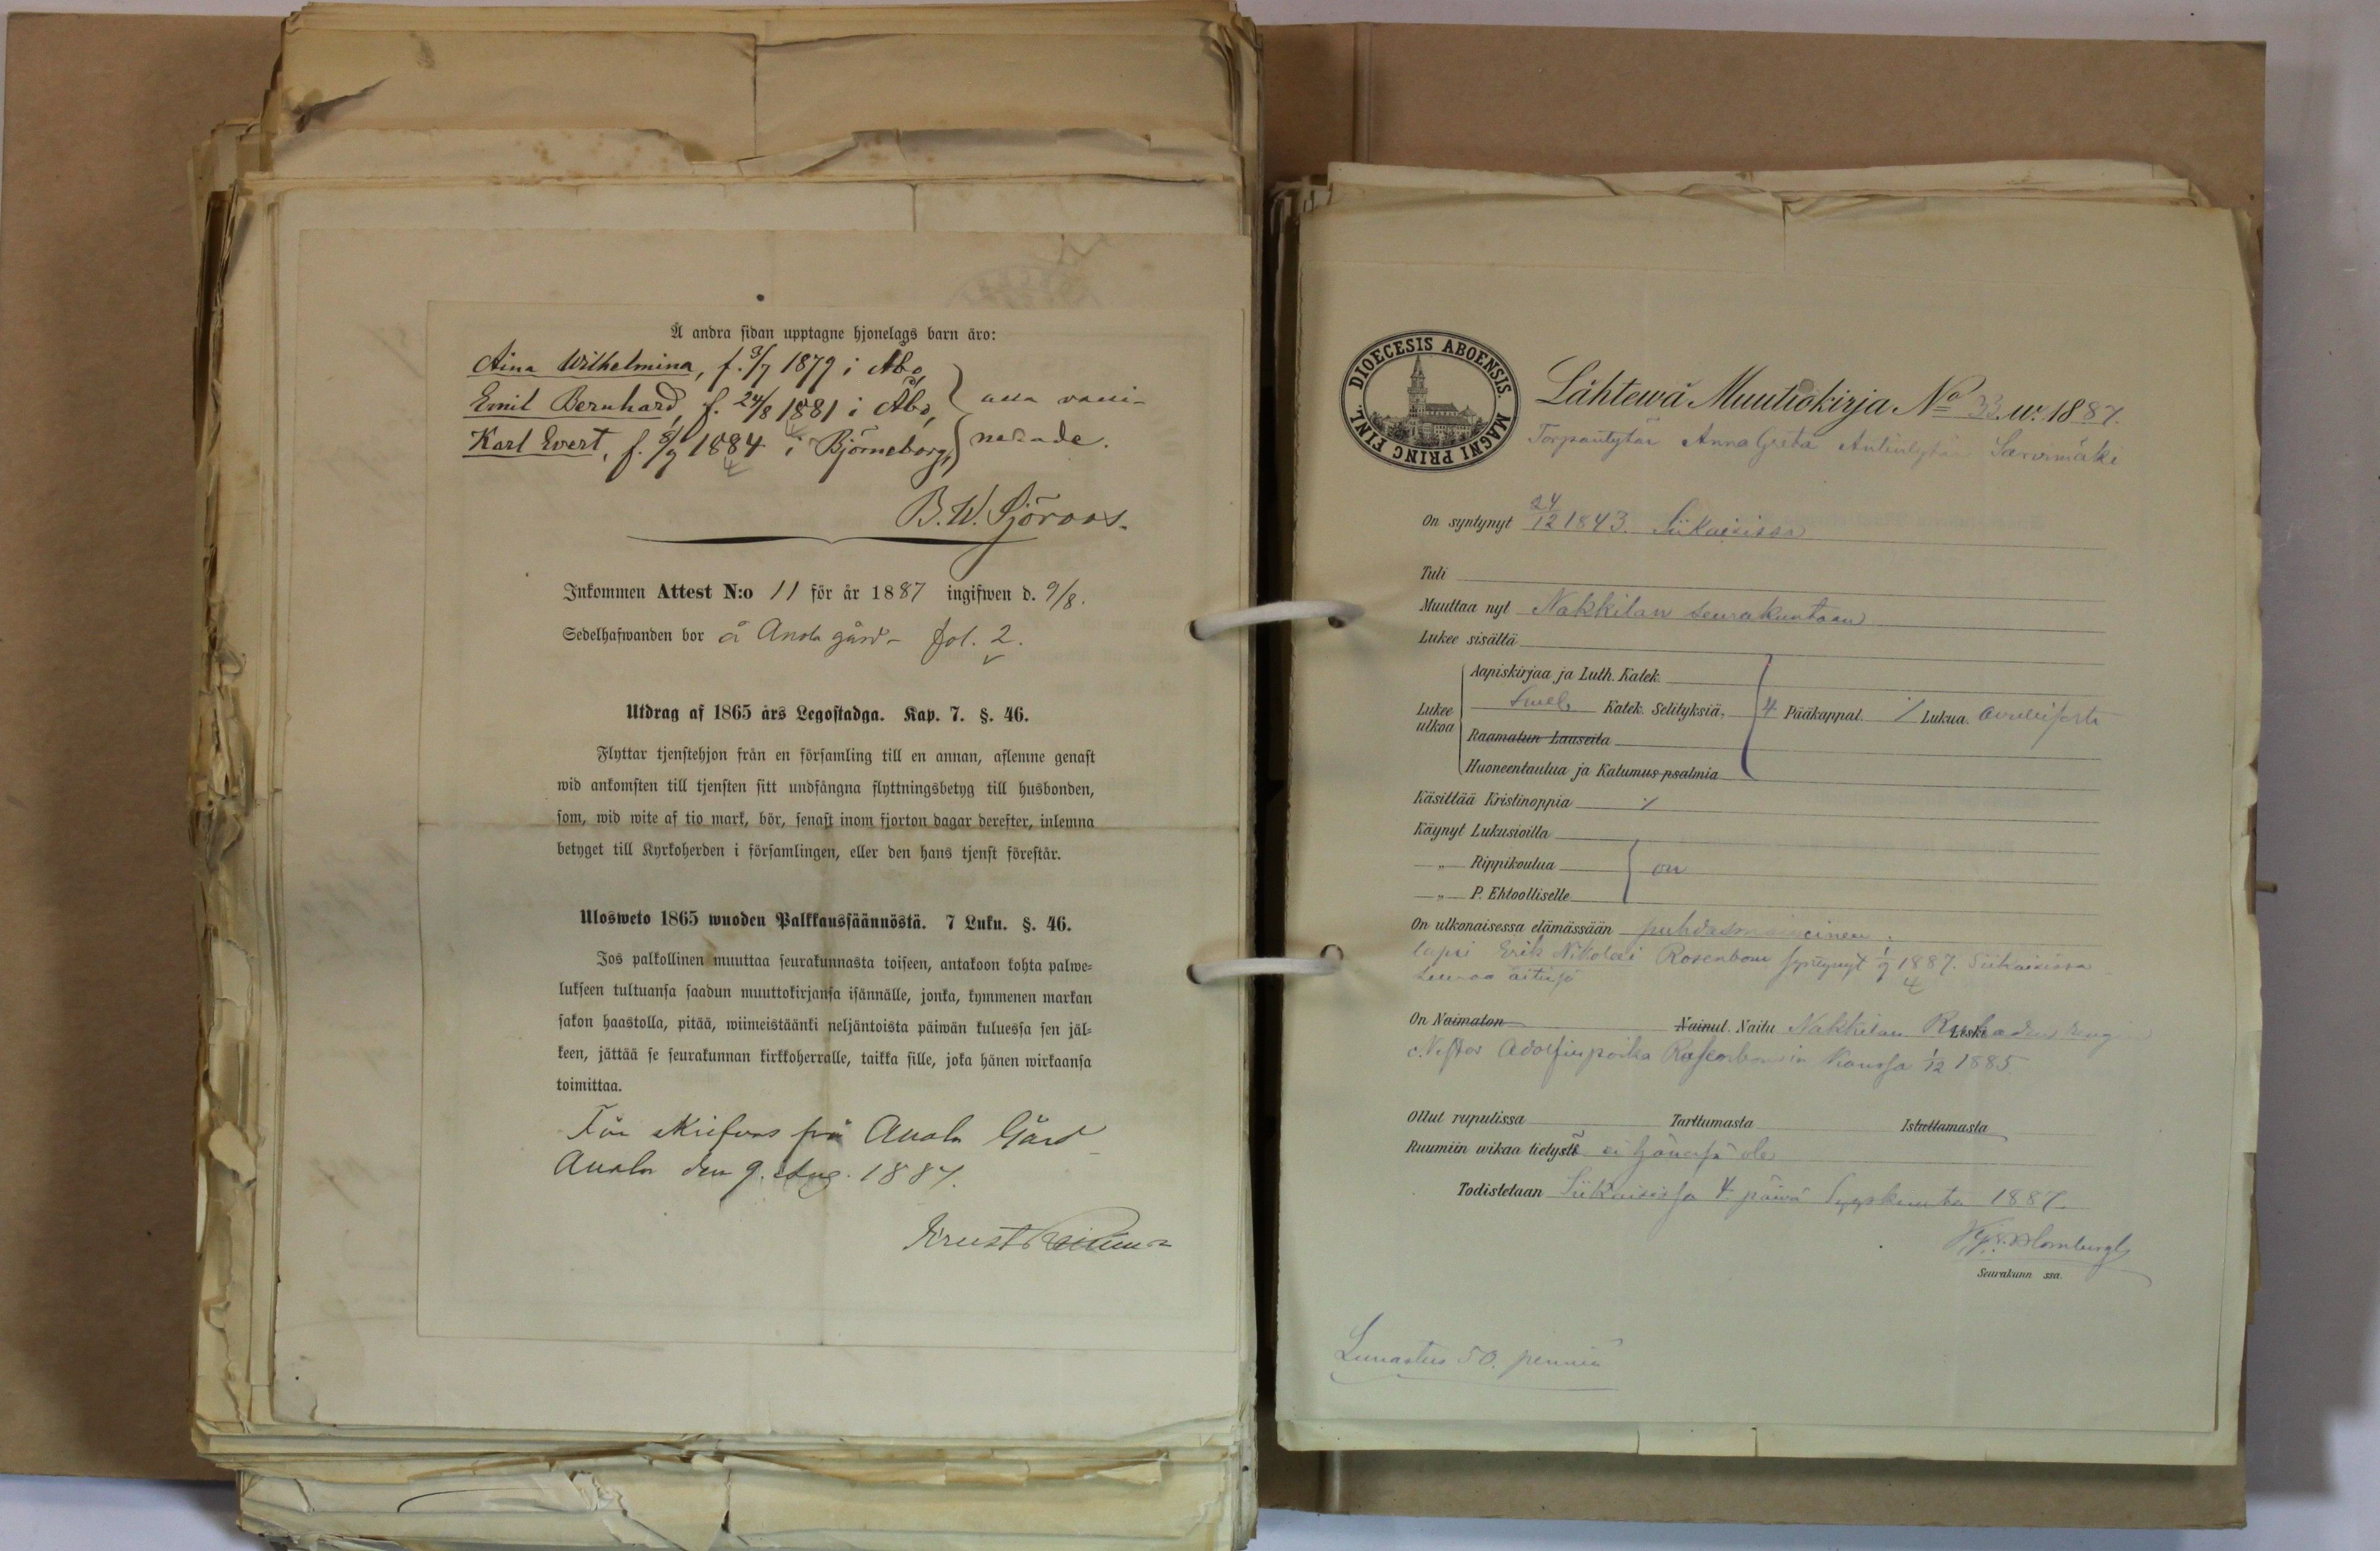 Å andra sidan upptagne hjonelags barn äro:
Aina Wilhelmina, f. 3/7 1879 i Åbo,
Emil Bernhard, f. 24/8 1881 i Åbo, alla vacci-
Karl Evert, f. 8/9 1884 i Björneborg, nerade.
B. W. Sjöroos.
Inkommen Attest N:o 11 för år 1887 ingifwen d. 9/8.
Sedelhafwanden bor å Anola gård - fol. 2.
Utdrag af 1865 års Legostadga. Kap. 7. §. 46.
Flyttar tjenstehjon från en församling till en annan, aflemne genast
wid ankomsten till tjensten sitt undfångna flyttningsbetyg till husbonden,
som, wid wite af tio mark, bör, senast inom fjorton dagar derefter, inlemna
betyget till Kyrkoherden i församlingen, eller den hans tjenst förestår.
Ulosweto 1865 wuoden Palkkaussäännöstä. 7 Luku. §. 46.
Jos palkollinen muuttaa seurakunnasta toiseen, antakoon kohta palwe=
lukseen tultuansa saadun muuttokirjansa isännälle, jonka, kymmenen markan
sakon haastolla, pitää, wiimeistäänki neljäntoista päiwän kuluessa sen jäl=
keen, jättää se seurakunnan kirkkoherralle, taikka sille, joka hänen wirkaansa
toimittaa.
från Anola Gård
Anola den 9. Aug. 1887.
Ernst
DIOECESIS ABOENSIS. MAGNI PRINC FINL.
Lähtewä Muuttokirja No 33 w. 1887.
Torpantytär Anna Greta Antintytär Sarvimäki
On syntynyt 24/12 1843. Siikaisissa
Tuli
Muuttaa nyt Nakkilan seurakuntaan
Lukee sisältä
Aapiskirjaa ja Luth. Katek.
Lukee ulkoa Katek. Selityksiä, 4 Pääkappal. Lukua.
Raamatun Lauseita
Huoneentaulua ja Katumus-psalmia
Käsittää Kristinoppia
Käynyt Lukusioilla
—„— Rippikoulua on
—„— P. Ehtoolliselle
On ulkonaisessa elämässään
lapsi Erik Nikolai Rosenbom syntynyt 1/9 1887. Siikaisissa
seuraa äitiänsä
On Naimaton Nainut. Naitu Nakkilan Leski
Nestor Adolfinpoika Rosenbomin kanssa 1/12 1885
Ollut rupulissa Tarttumasta Istuttamasta
Ruumiin wikaa tietystä ei hänessä ole
Todistetaan Siikaisissa 4 päivä Syyskuuta 1887.
Seurakunn ssa.
Lunastus 50. penniä